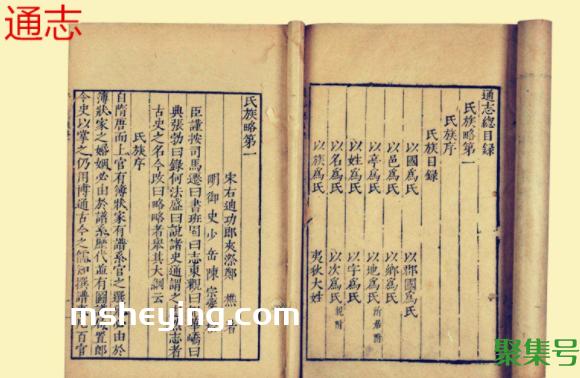 通志
通志總目錄
氏族略第一
氏族序
氏族目録
以國爲氏 以郡國爲氏
以邑爲氏 以鄉爲氏
以亭爲氏 以地爲氏 所居附
以姓爲氏 以字爲氏
以名爲氏 以次爲氏 親附
以族爲氏 夷狄大姓
氏族略第一
宋右迪功郎夾漈鄭 樵 著
明御史少岳陳 宗夔
臣謹按司馬遷曰書班固曰志東觀曰 華嶠曰
典張勃曰録何法盛曰說諸史通謂之 志者
古史之名今改曰略略者舉其大綱云
氏族序
自隋唐而上官有簿狀家有譜系官之選 由於
簿狀家之婚姻必由於譜系歷代並有圖譜 置郎
令史以掌之仍用博通古今之儒知撰譜 百官
msheying.com
聚集号